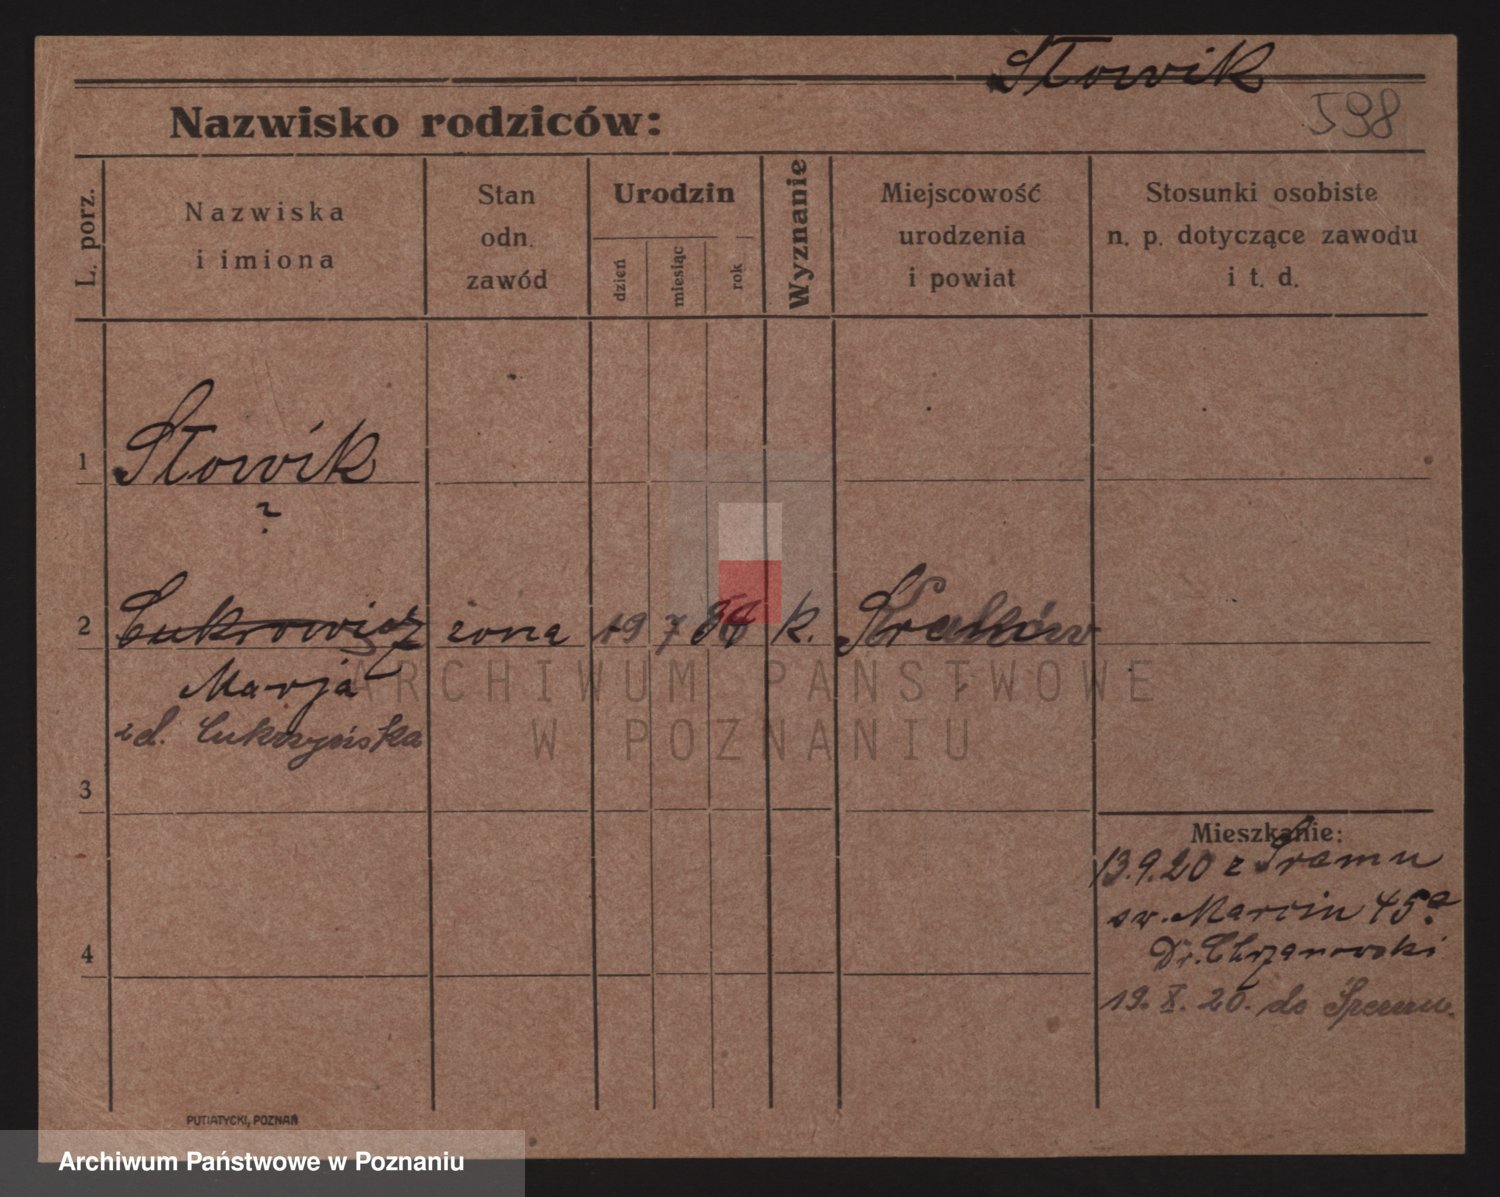 Słowik
Nazwisko rodziców:
598
L. porz.
Nazwiska
i imiona
Stan
odn.
zawód
Urodzin
dzień
miesiąc
rok
Wyznanie
Miejscowość
urodzenia
i powiat
Stosunki osobiste
n. p. dotyczące zawodu
i t. d.
1
Słowik
?
2
Cukrowicz żona 19 7 k. Kraków
Marja
Cukrzyńska
ARCHIWUM PAŃSTWOWE
W POZNANIU
3
Mieszkanie:
13.9.20 z Śremu
św. Marcin 45a
Dr. Chrzanowski
4
19. X. 20. do Śremu.
PUTIATYCKI, POZNAŃ
Archiwum Państwowe w Poznaniu